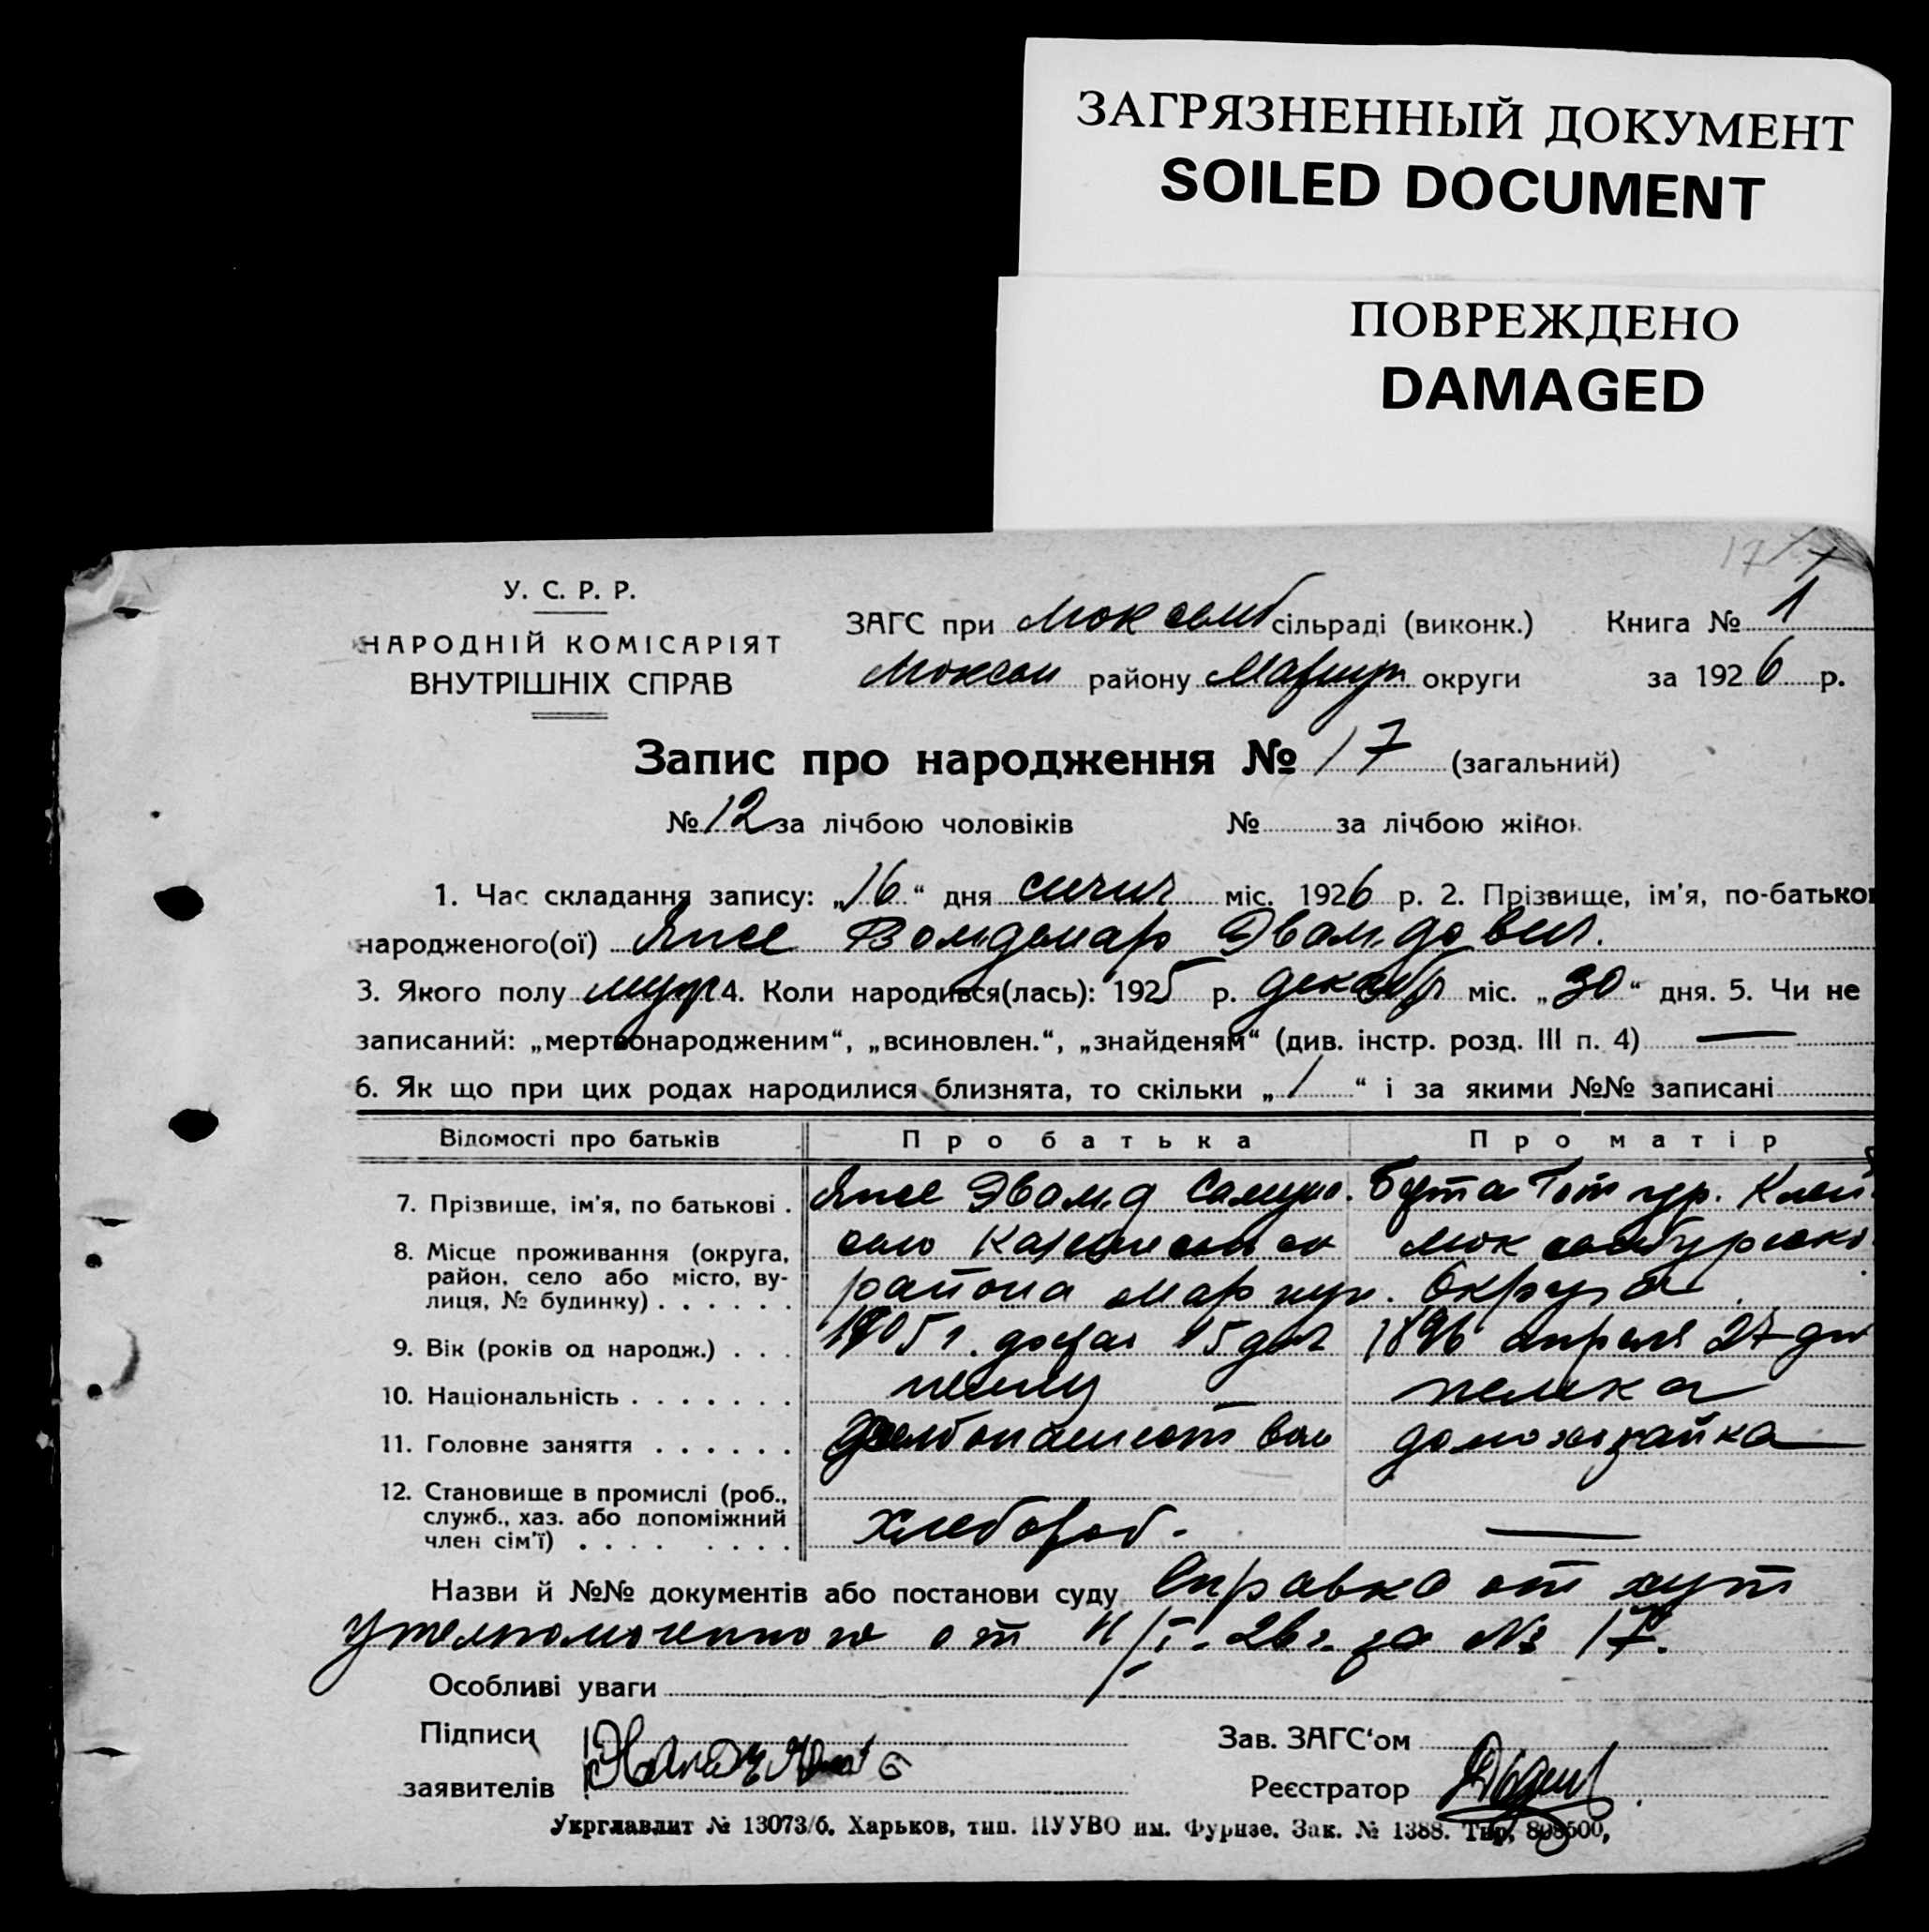 ЗАГРЯЗНЕННЫЙ ДОКУМЕНТ
SOILED DOCUMENT
ПОВРЕЖДЕНО
DAMAGED
17
У. С. Р. Р.
НАРОДНІЙ КОМІСАРІЯТ
ВНУТРІШНІХ СПРАВ
ЗАГС при сільраді (виконк.) Книга № 1
району Мариуп округи за 1926 р.
Запис про народження № 17 (загальний)
№ 12 за лічбою чоловіків № за лічбою жінок
1. Час складання запису: „16“ дня сичня міс. 1926 р. 2. Прізвище, ім'я, по-батькові
народженого(ої) Янсе Вольдемар Эвальдович.
3. Якого полу муж 4. Коли народився(лась): 1925 р. декабр міс. „30“ дня. 5. Чи не
записаний: „мертвонародженим“, „всиновлен.“, „знайденям“ (див. інстр. розд. III п. 4) —
6. Як що при цих родах народилися близнята, то скільки „/“ і за якими №№ записані
Відомості про батьків Про батька Про матір
7. Прізвище, ім'я, по батькові . Янсе Эвальд Самуил.
8. Місце проживання (округа, село
район, село або місто, ву-
лиця, № будинку) . . . . . . района Мариуп. Округа
9. Вік (років од народж.) . . . 1905 г. 15 дня 1896 апреля 27 дня
10. Національність . . . . . . . немец немка
11. Головне заняття . . . . . . хлебопашество домохозяйка
12. Становище в промислі (роб.,
служб., хаз. або допоміжний
член сім'ї) . . . . . . . . хлебороб. —
Назви й №№ документів або постанови суду Справка от хут
уполномоченного от 11/I. 26 г. за № 17.
Особливі уваги
Підписи
заявителів
Зав. ЗАГС'ом
Реєстратор
Укрглавлит № 13073/б. Харьков, тип. ПУУВО им. Фрунзе. Зак. № 1388. Тир.